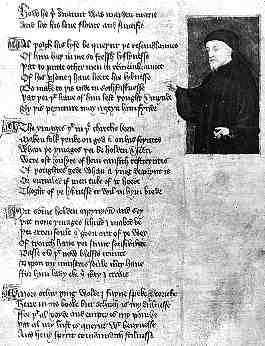 How he þi seruaunt was mayden marie
And lat his loue floure and fructifie
Al þogh his lyfe be queynt þe resemblaunce
Of him haþ in me so fressh lyflynesse
Þat to putte othir men in remembraunce
Of his persone I haue heere his lyknesse
Do make to þis ende in sothfastnesse
Þat þei þt haue of him lest þought & mynde
By þis peynture may ageyn him fynde
The ymages þt in þe chirche been
Maken folk þenke on god & on his seyntes
Whan þe ymages þei be holden & seen
Were oft vnsyte of hem causith restreyntes
Of þoughtes gode whan a þing depeynt is
Or entailed if men take of it heede
Thoght of þe lyknesse it wil in hym brede
Yit somme holden oppynyoun and sey
Þat none ymages schuld I maked be
Þei erren foule & goon out of þe wey
Of trouth haue þei scant sensibilite
Passe ouer þt now blessid trinite
Vppon my maistres soule mercy haue
ffor him lady eke þi mercy I craue
More othir þing wolde I fayne speke & touche
Heere in þis booke but schuch is my dulnesse
ffor þt al voyde and empty is my pouche
Þat al my lust is queynt wt heuynesse
And heuy spirit comaundith stilnesse